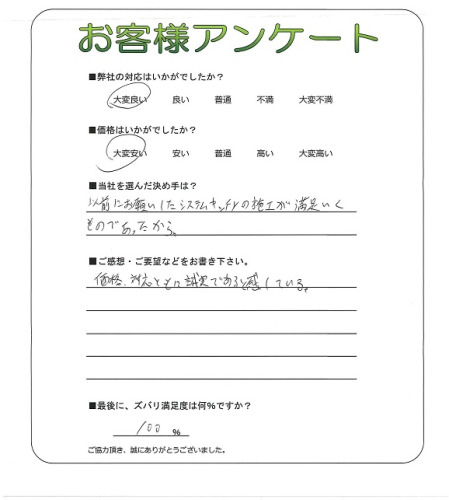 お客様アンケート
■弊社の対応はいかがでしたか？
大変良い 良い 普通 不満 大変不満
■価格はいかがでしたか？
大変安い 安い 普通 高い 大変高い
■当社を選んだ決め手は？
以前にお願いしたシステムキッチンの施工が満足いく
ものであったから。
■ご感想・ご要望などをお書き下さい。
価格、対応ともに誠実であると感じている。
■最後に、ズバリ満足度は何%ですか？
100 %
ご協力頂き、誠にありがとうございました。